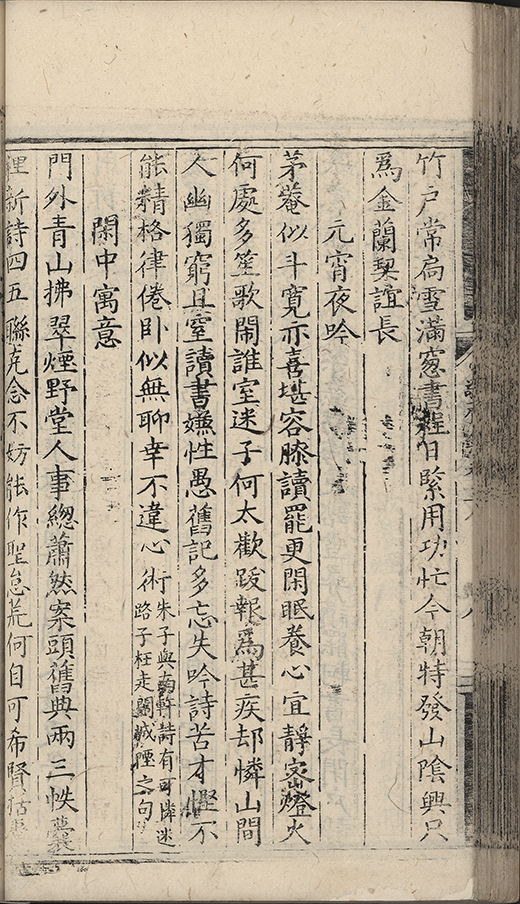 竹戶常扃雪滿窓書程日緊用功忙今朝特發山陰興只
爲金蘭契誼長
元宵夜吟
茅菴似斗寬亦喜堪容膝讀罷更閑眠養心宜靜密燈火
何處多笙歌鬧誰室迷子何太歡跋報爲甚疾却憐山間
人幽獨窮且窒讀書嫌性愚舊記多忘失吟詩苦才慳不
能精格律倦卧似無聊幸不違心術朱子與南軒詩有可憐迷
路子枉走闉城堙之句
閑中寓意
門外青山拂翠煙野堂人事緫蕭然案頭舊典兩三帙囊
裡新詩四五聯克念不妨能作聖怠荒何自可希賢